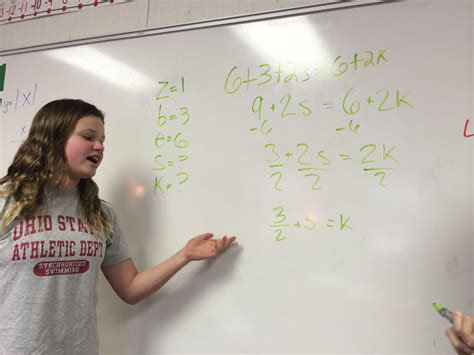 -13 -12 -11 -10 -9
y=|x|
x
z=1
b=3
e=6
s=?
k=?
6+3+2s=6+2k
9+2s=6+2k
-6 -6
3/2+2s/2=2k/2
3/2+s=k
OHIO STATE
ATHLETIC DEPT.
SYNCHRONIZED
SWIMMING